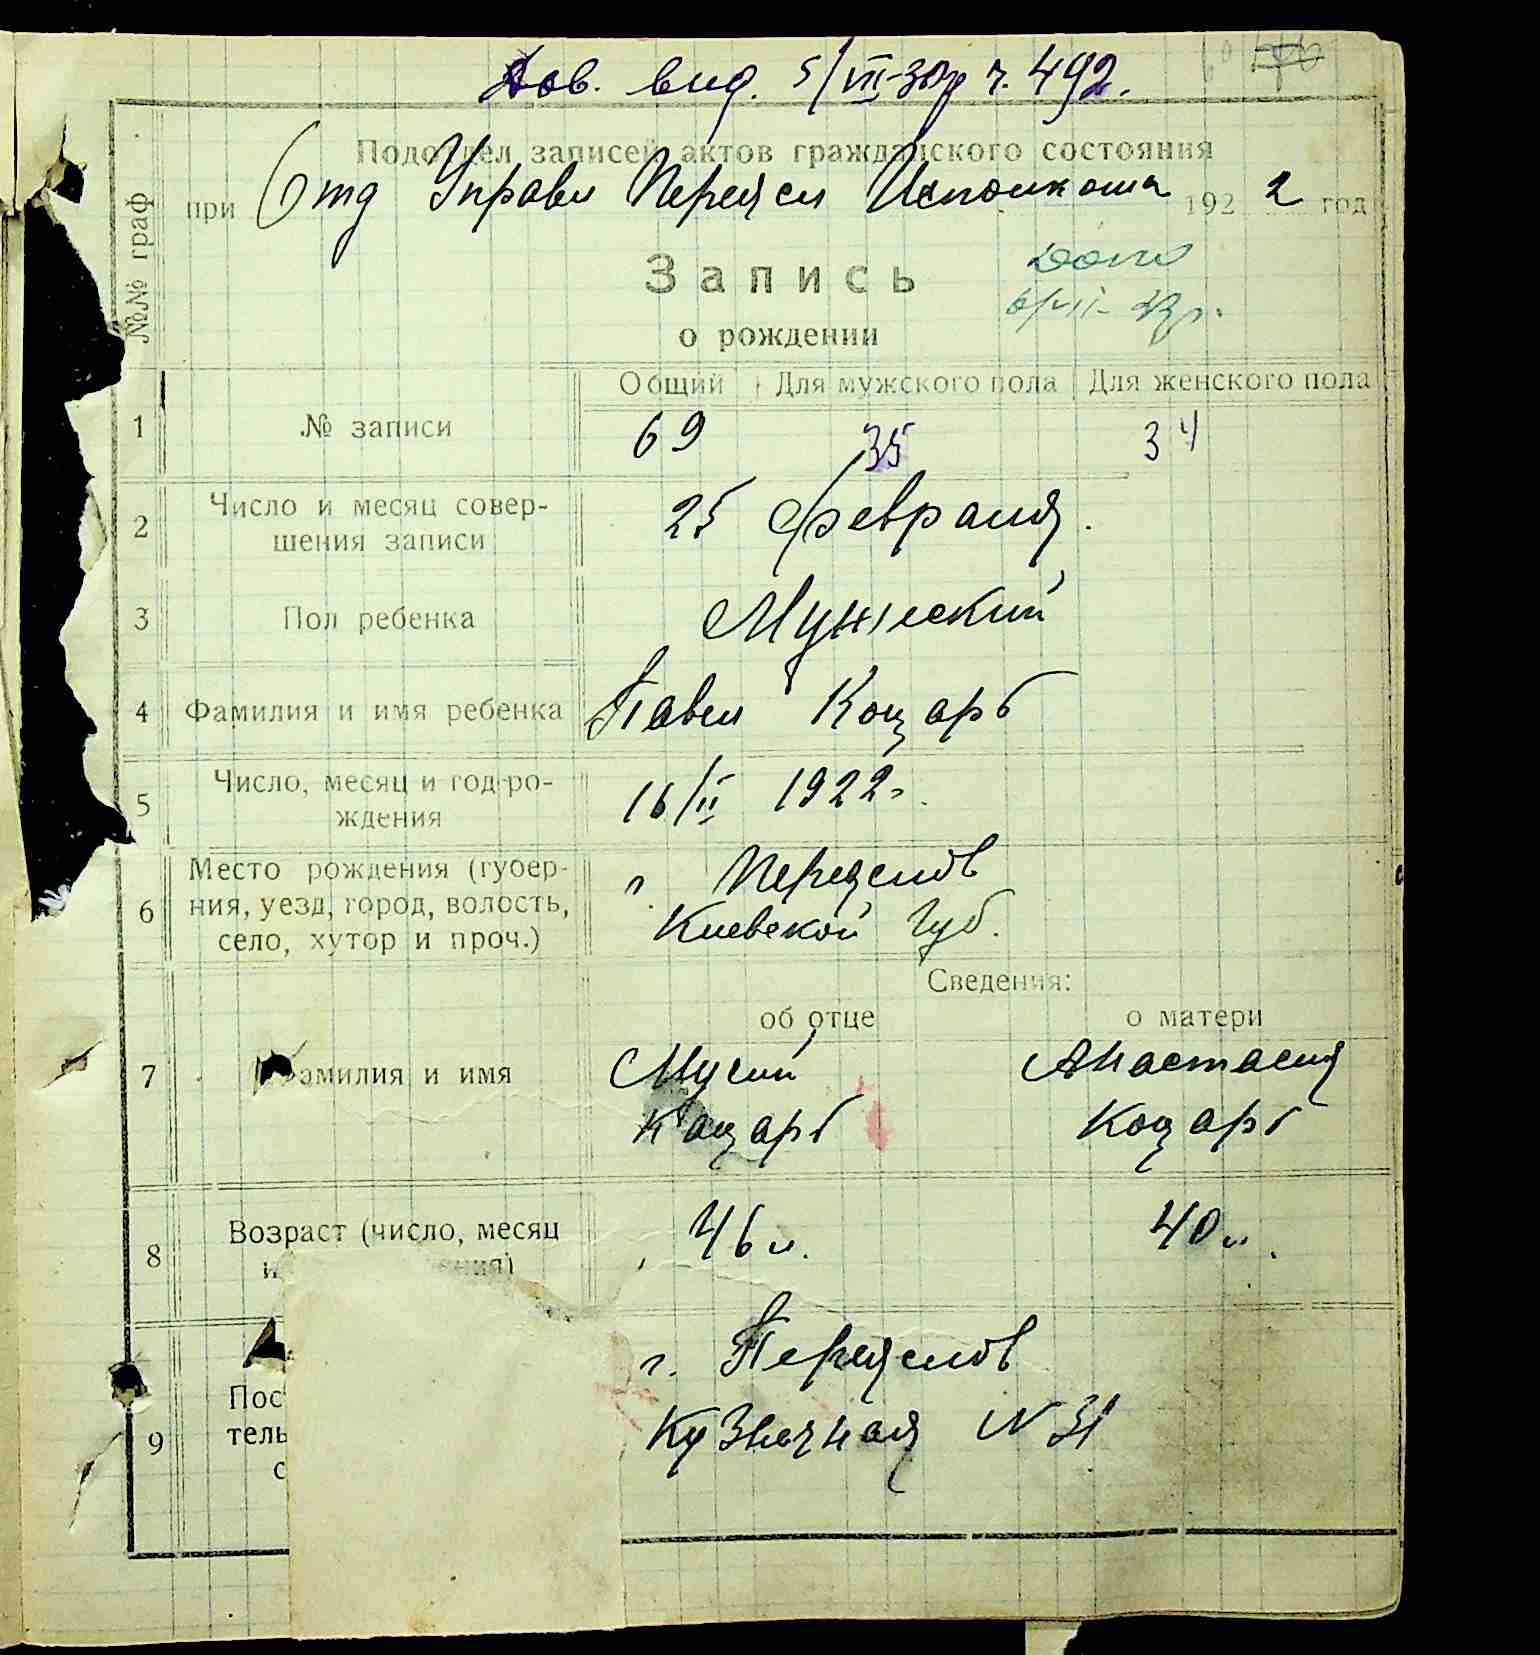 Дов. вид. 5/VII-30р ч. 492.
Подотдел записей актов гражданского состояния
при Отд Управл Переясл Исполкома 1922 год
№№ граф
Запись
6/VII-
о рождении
Общий Для мужского пола Для женского пола
1 № записи 69 35 34
2 Число и месяц совер-
шения записи 25 февраля.
3 Пол ребенка Мужеский
4 Фамилия и имя ребенка Павел Коцарь
5 Число, месяц и год ро-
ждения 16/II 1922 г.
6 Место рождения (губер-
ния, уезд, город, волость,
село, хутор и проч.)
г. Переяслов
Киевской Губ.
Сведения:
об отце о матери
7 Фамилия и имя Мусий Анастасия
Коцарь Коцарь
8 Возраст (число, месяц 46 л. 40 л.
9 г. Переяслов
Пос
тель Кузнечная N 31
с